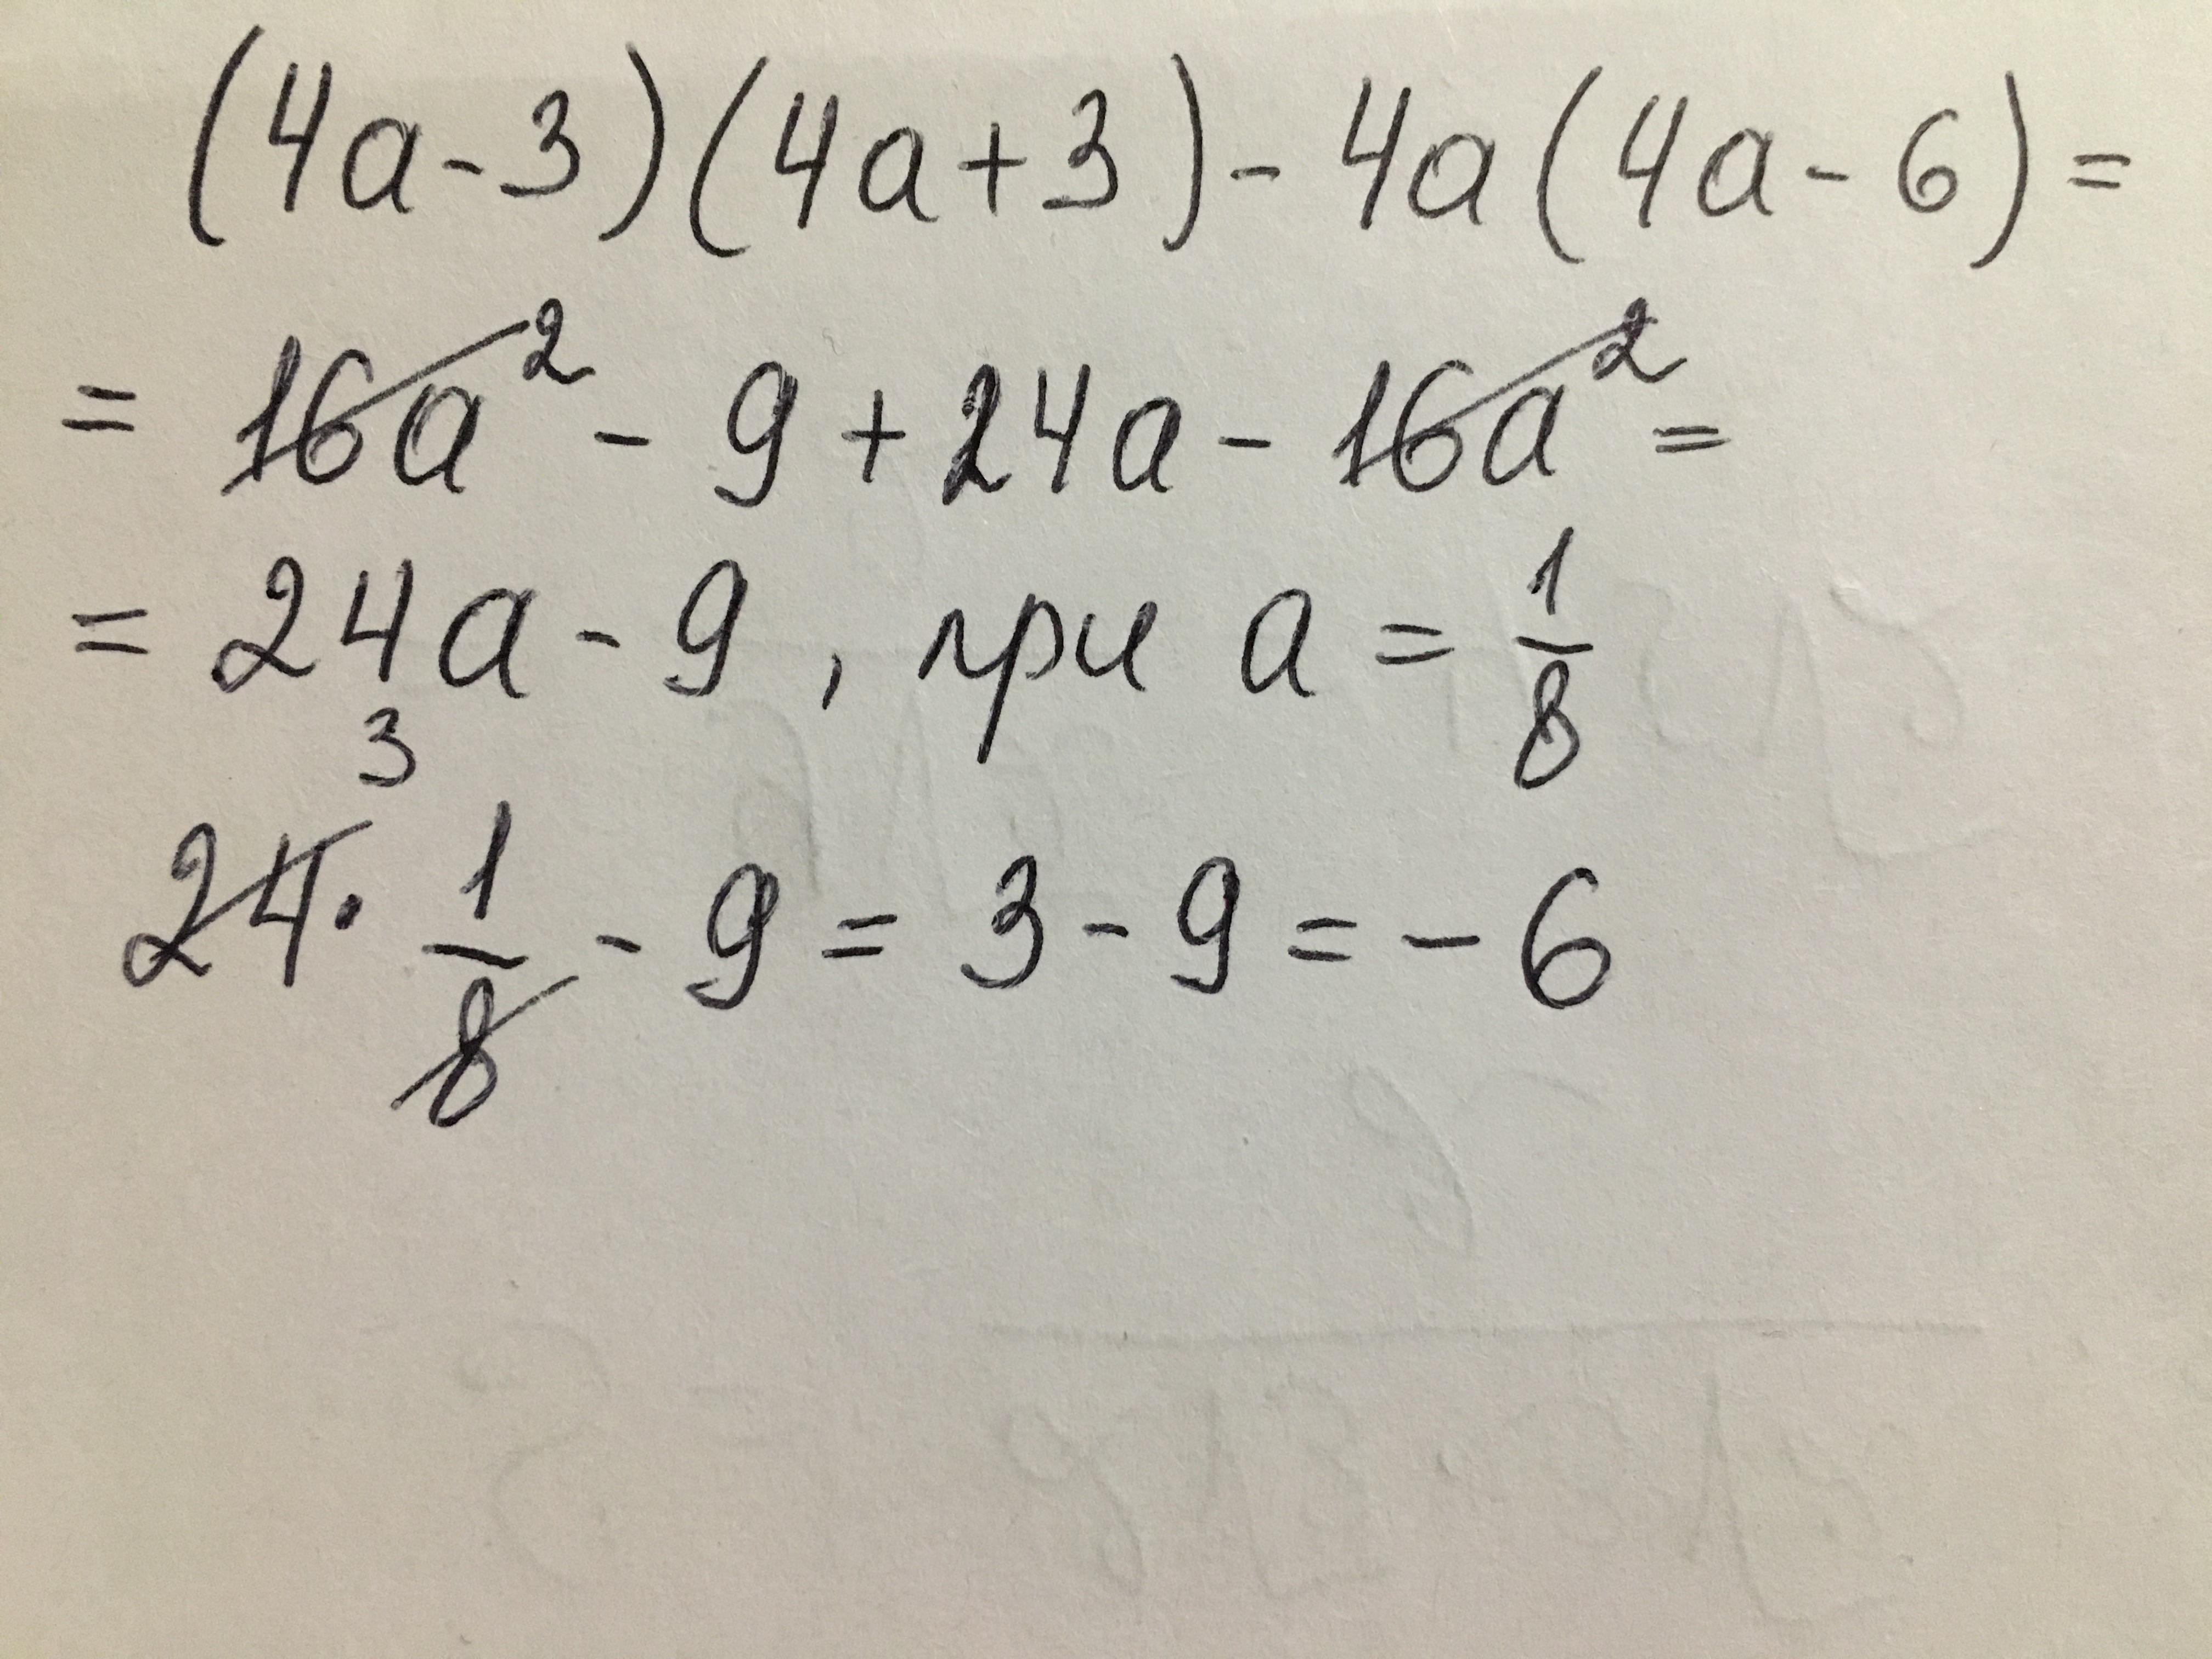 (4a-3)(4a+3)-4a(4a-6)=
=16a²-9+24a-16a²=
=24a-9, при a=1/8
3
24·1/8-9=3-9=-6